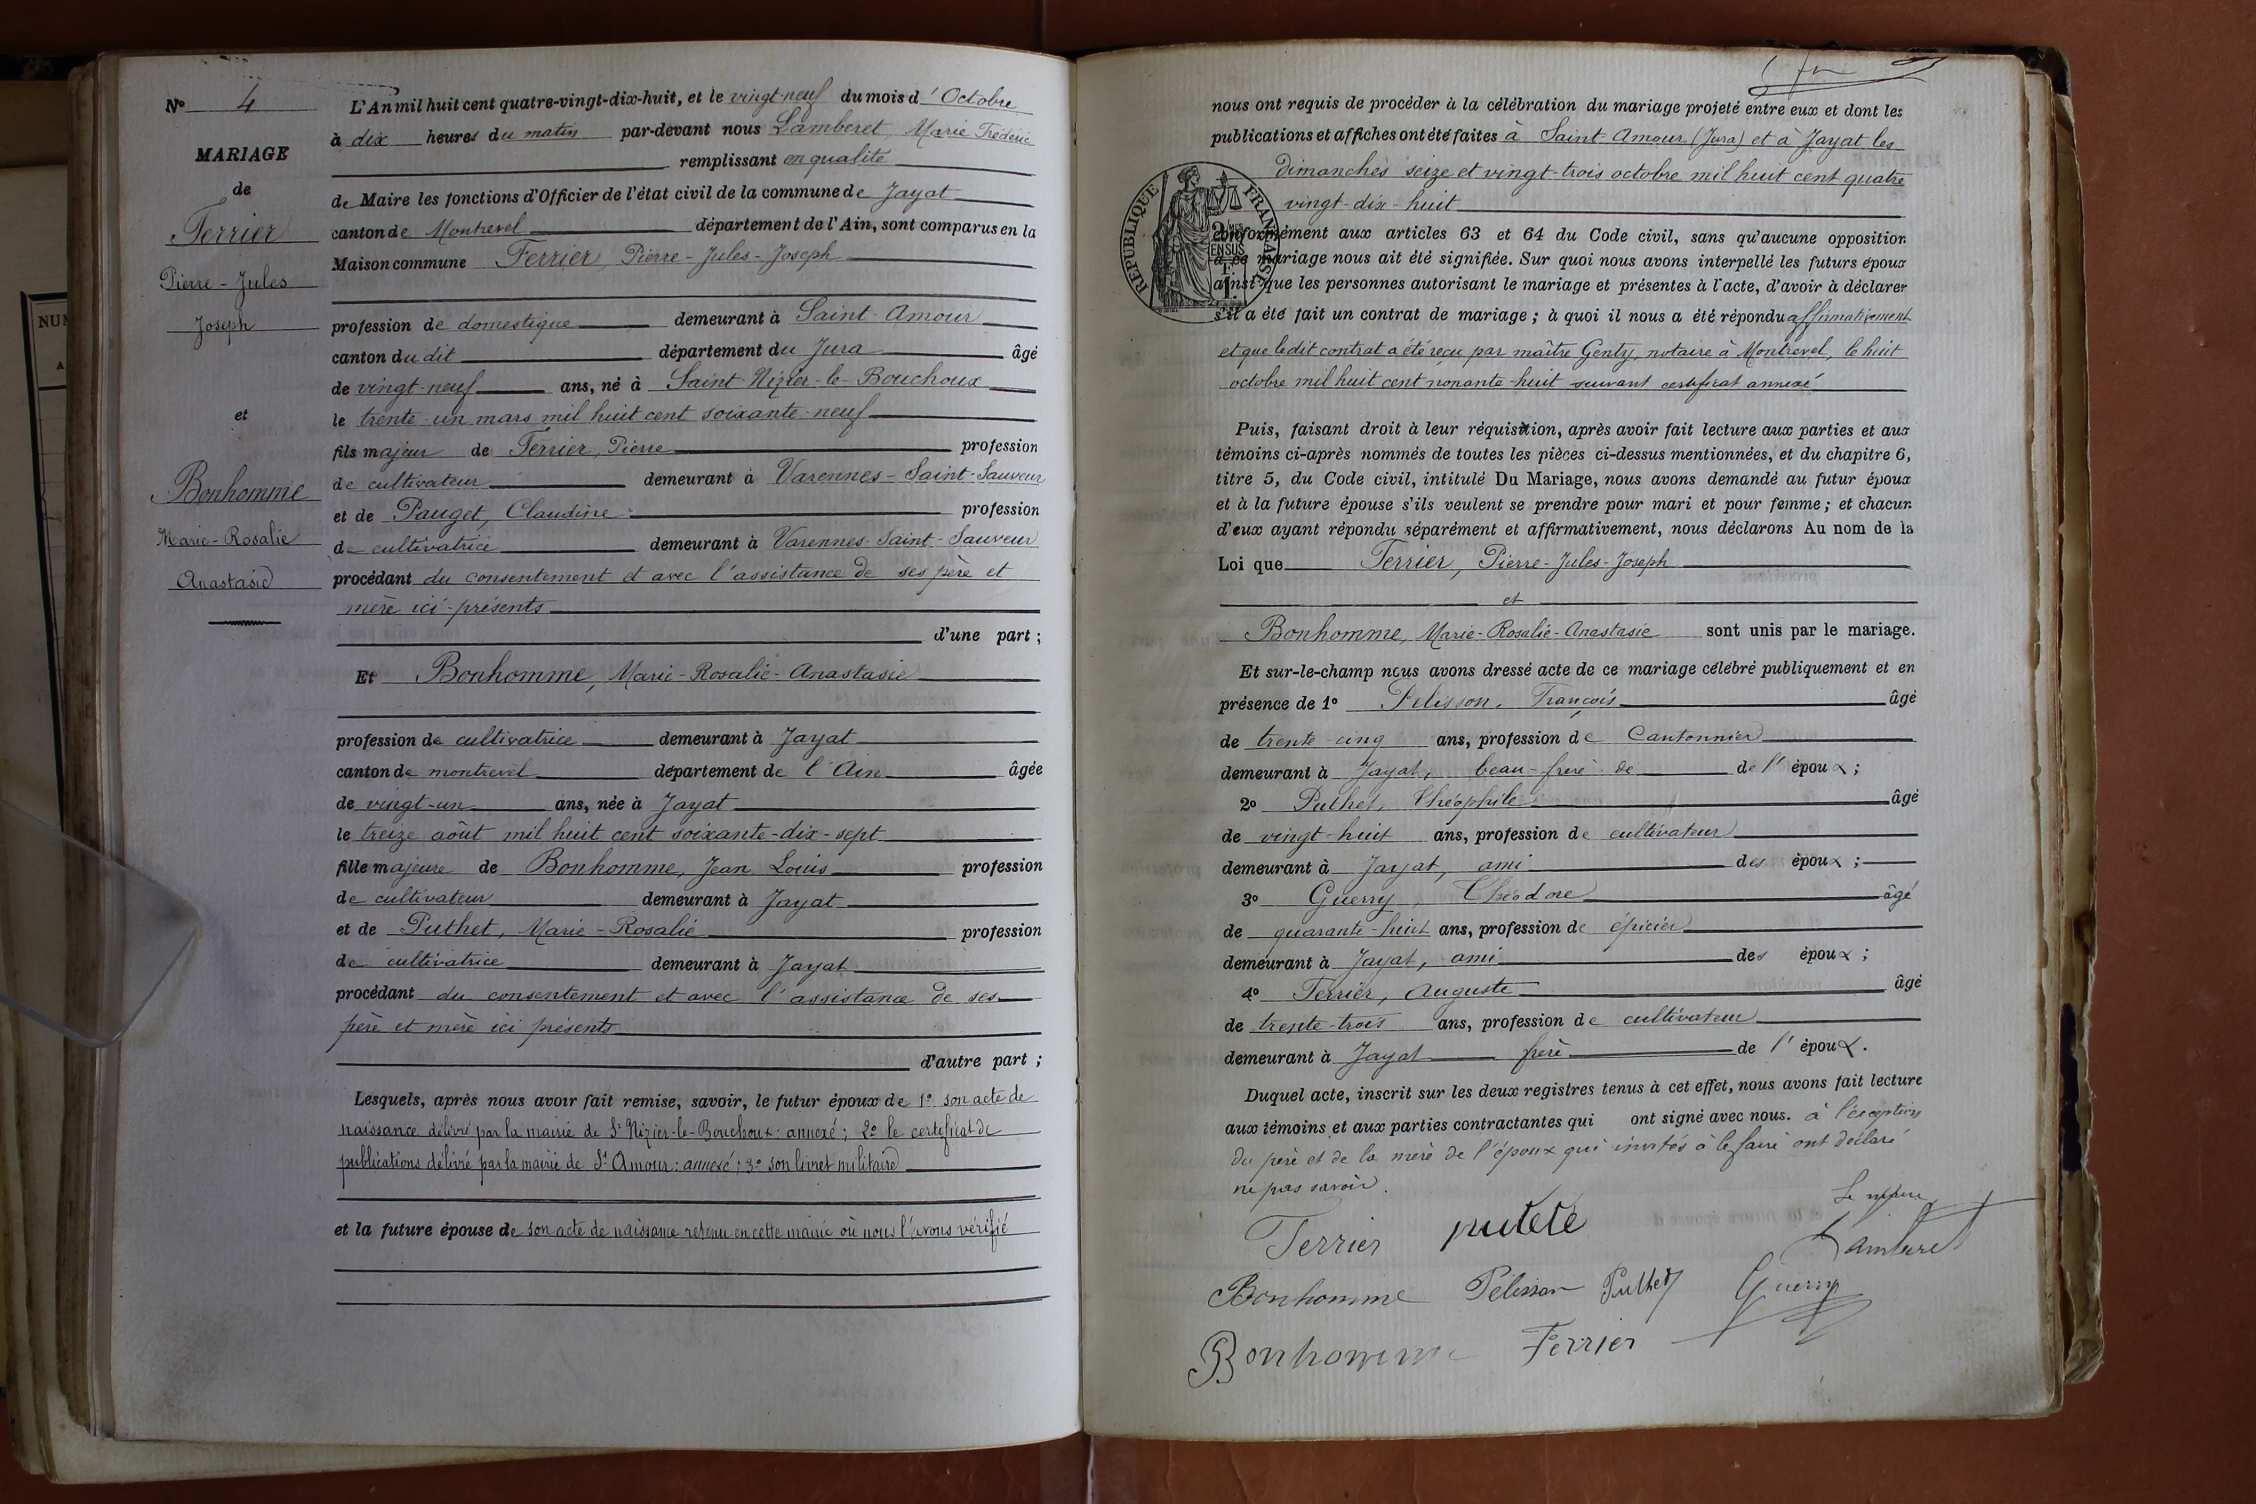 N° 4
MARIAGE
de
Ferrier
Pierre-Jules
Joseph
et
Bonhomme
Marie-Rosalie
Anastasie
L'An mil huit cent quatre-vingt-dix-huit, et le vingt-neuf du mois d'Octobre
à dix heures du matin par-devant nous Lamberet, Marie Frédéric
remplissant en qualité
de Maire les fonctions d'Officier de l'état civil de la commune de Jayat
canton de Montrevel département de l'Ain, sont comparus en la
Maison commune Ferrier Pierre-Jules-Joseph
profession de domestique demeurant à Saint-Amour
canton du dit département du Jura âgé
de vingt-neuf ans, né à Saint-Nizier-le-Bouchoux
le trente-un mars mil huit cent soixante-neuf
fils majeur de Ferrier, Pierre profession
de cultivateur demeurant à Varennes-Saint-Sauveur
et de Pauget, Claudine profession
de cultivatrice demeurant à Varennes-Saint-Sauveur
procédant du consentement et avec l'assistance de ses père et
mère ici-présents
d'une part ;
Et Bonhomme, Marie-Rosalie-Anastasie
profession de cultivatrice demeurant à Jayat
canton de montrevel département de l'Ain âgée
de vingt-un ans, née à Jayat
le treize août mil huit cent soixante-dix-sept
fille majeure de Bonhomme, Jean Louis profession
de cultivateur demeurant à Jayat
et de Puthet, Marie-Rosalie profession
de cultivatrice demeurant à Jayat
procédant du consentement et avec l'assistance de ses
père et mère ici présents
d'autre part ;
Lesquels, après nous avoir fait remise, savoir, le futur époux de 1° son acte de
naissance délivré par la mairie de St Nizier-le-Bouchoux : annexé ; 2° le certificat de
publications délivré par la mairie de St Amour : annexé ; 3° son livret militaire
et la future épouse de son acte de naissance retenu en cette mairie où nous l'avons vérifié
nous ont requis de procéder à la célébration du mariage projeté entre eux et dont les
publications et affiches ont été faites à Saint-Amour (Jura) et à Jayat les
dimanches seize et vingt-trois octobre mil huit cent quatre
vingt-dix-huit
REPUBLIQUE FRANCAISE
conformément aux articles 63 et 64 du Code civil, sans qu'aucune opposition
à ce mariage nous ait été signifiée. Sur quoi nous avons interpellé les futurs époux
ainsi que les personnes autorisant le mariage et présentes à l'acte, d'avoir à déclarer
s'il a été fait un contrat de mariage ; à quoi il nous a été répondu affirmativement
et que ledit contrat a été reçu par maître Genty, notaire à Montrevel, le huit
octobre mil huit cent nonante-huit suivant certificat annexé
Puis, faisant droit à leur réquisition, après avoir fait lecture aux parties et aux
témoins ci-après nommés de toutes les pièces ci-dessus mentionnées, et du chapitre 6,
titre 5, du Code civil, intitulé Du Mariage, nous avons demandé au futur époux
et à la future épouse s'ils veulent se prendre pour mari et pour femme ; et chacun
d'eux ayant répondu séparément et affirmativement, nous déclarons Au nom de la
Loi que Ferrier, Pierre-Jules-Joseph
et
Bonhomme, Marie-Rosalie-Anastasie sont unis par le mariage.
Et sur-le-champ nous avons dressé acte de ce mariage célébré publiquement et en
présence de 1° Pelisson, François âgé
de trente-cinq ans, profession de Cantonnier
demeurant à Jayat, beau-frère de de l'époux ;
2° Puthet, Théophile âgé
de vingt-huit ans, profession de cultivateur
demeurant à Jayat, ami des époux ;
3° Guerry, Théodore âgé
de quarante-huit ans, profession de épicier
demeurant à Jayat, ami des époux ;
4° Ferrier, Auguste âgé
de trente-trois ans, profession de cultivateur
demeurant à Jayat frère de l'époux.
Duquel acte, inscrit sur les deux registres tenus à cet effet, nous avons fait lecture
aux témoins et aux parties contractantes qui ont signé avec nous. à l'éxeption
du père et de la mère de l'époux qui invités à le faire ont déclaré
ne pas savoir.
Le maire
Ferrier puteté Lamberet
Bonhomme Pélisson Puthet Guerry
Bonhomme Ferrier